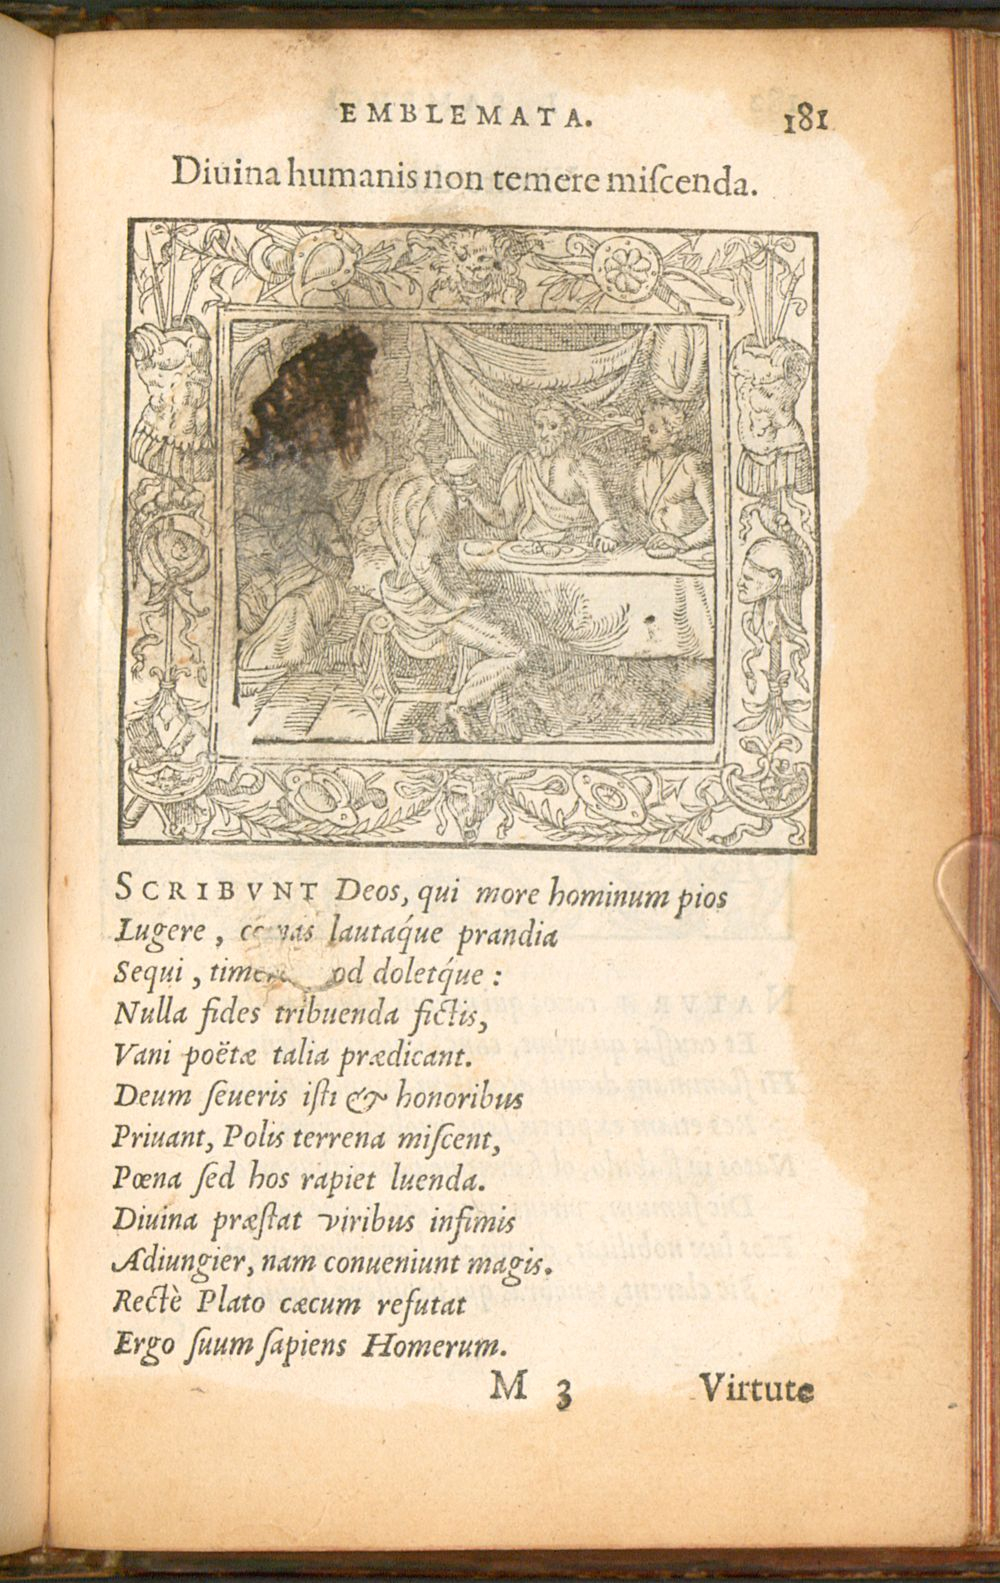 EMBLEMATA. 181
Diuina humanis non temere miſcenda.
SCRIBVNT Deos, qui more hominum pios
Lugere, lautáque prandia
Sequi, doletque:
Nulla fides tribuenda fictis,
Vani poëtæ talia prædicant.
Deum ſeueris iſti & honoribus
Priuant, Polis terrena miſcent,
Pœna ſed hos rapiet luenda.
Diuina præſtat viribus infimis
Adiungier, nam conueniunt magis.
Rectè Plato cæcum refutat
Ergo ſuum ſapiens Homerum.
M 3 Virtute